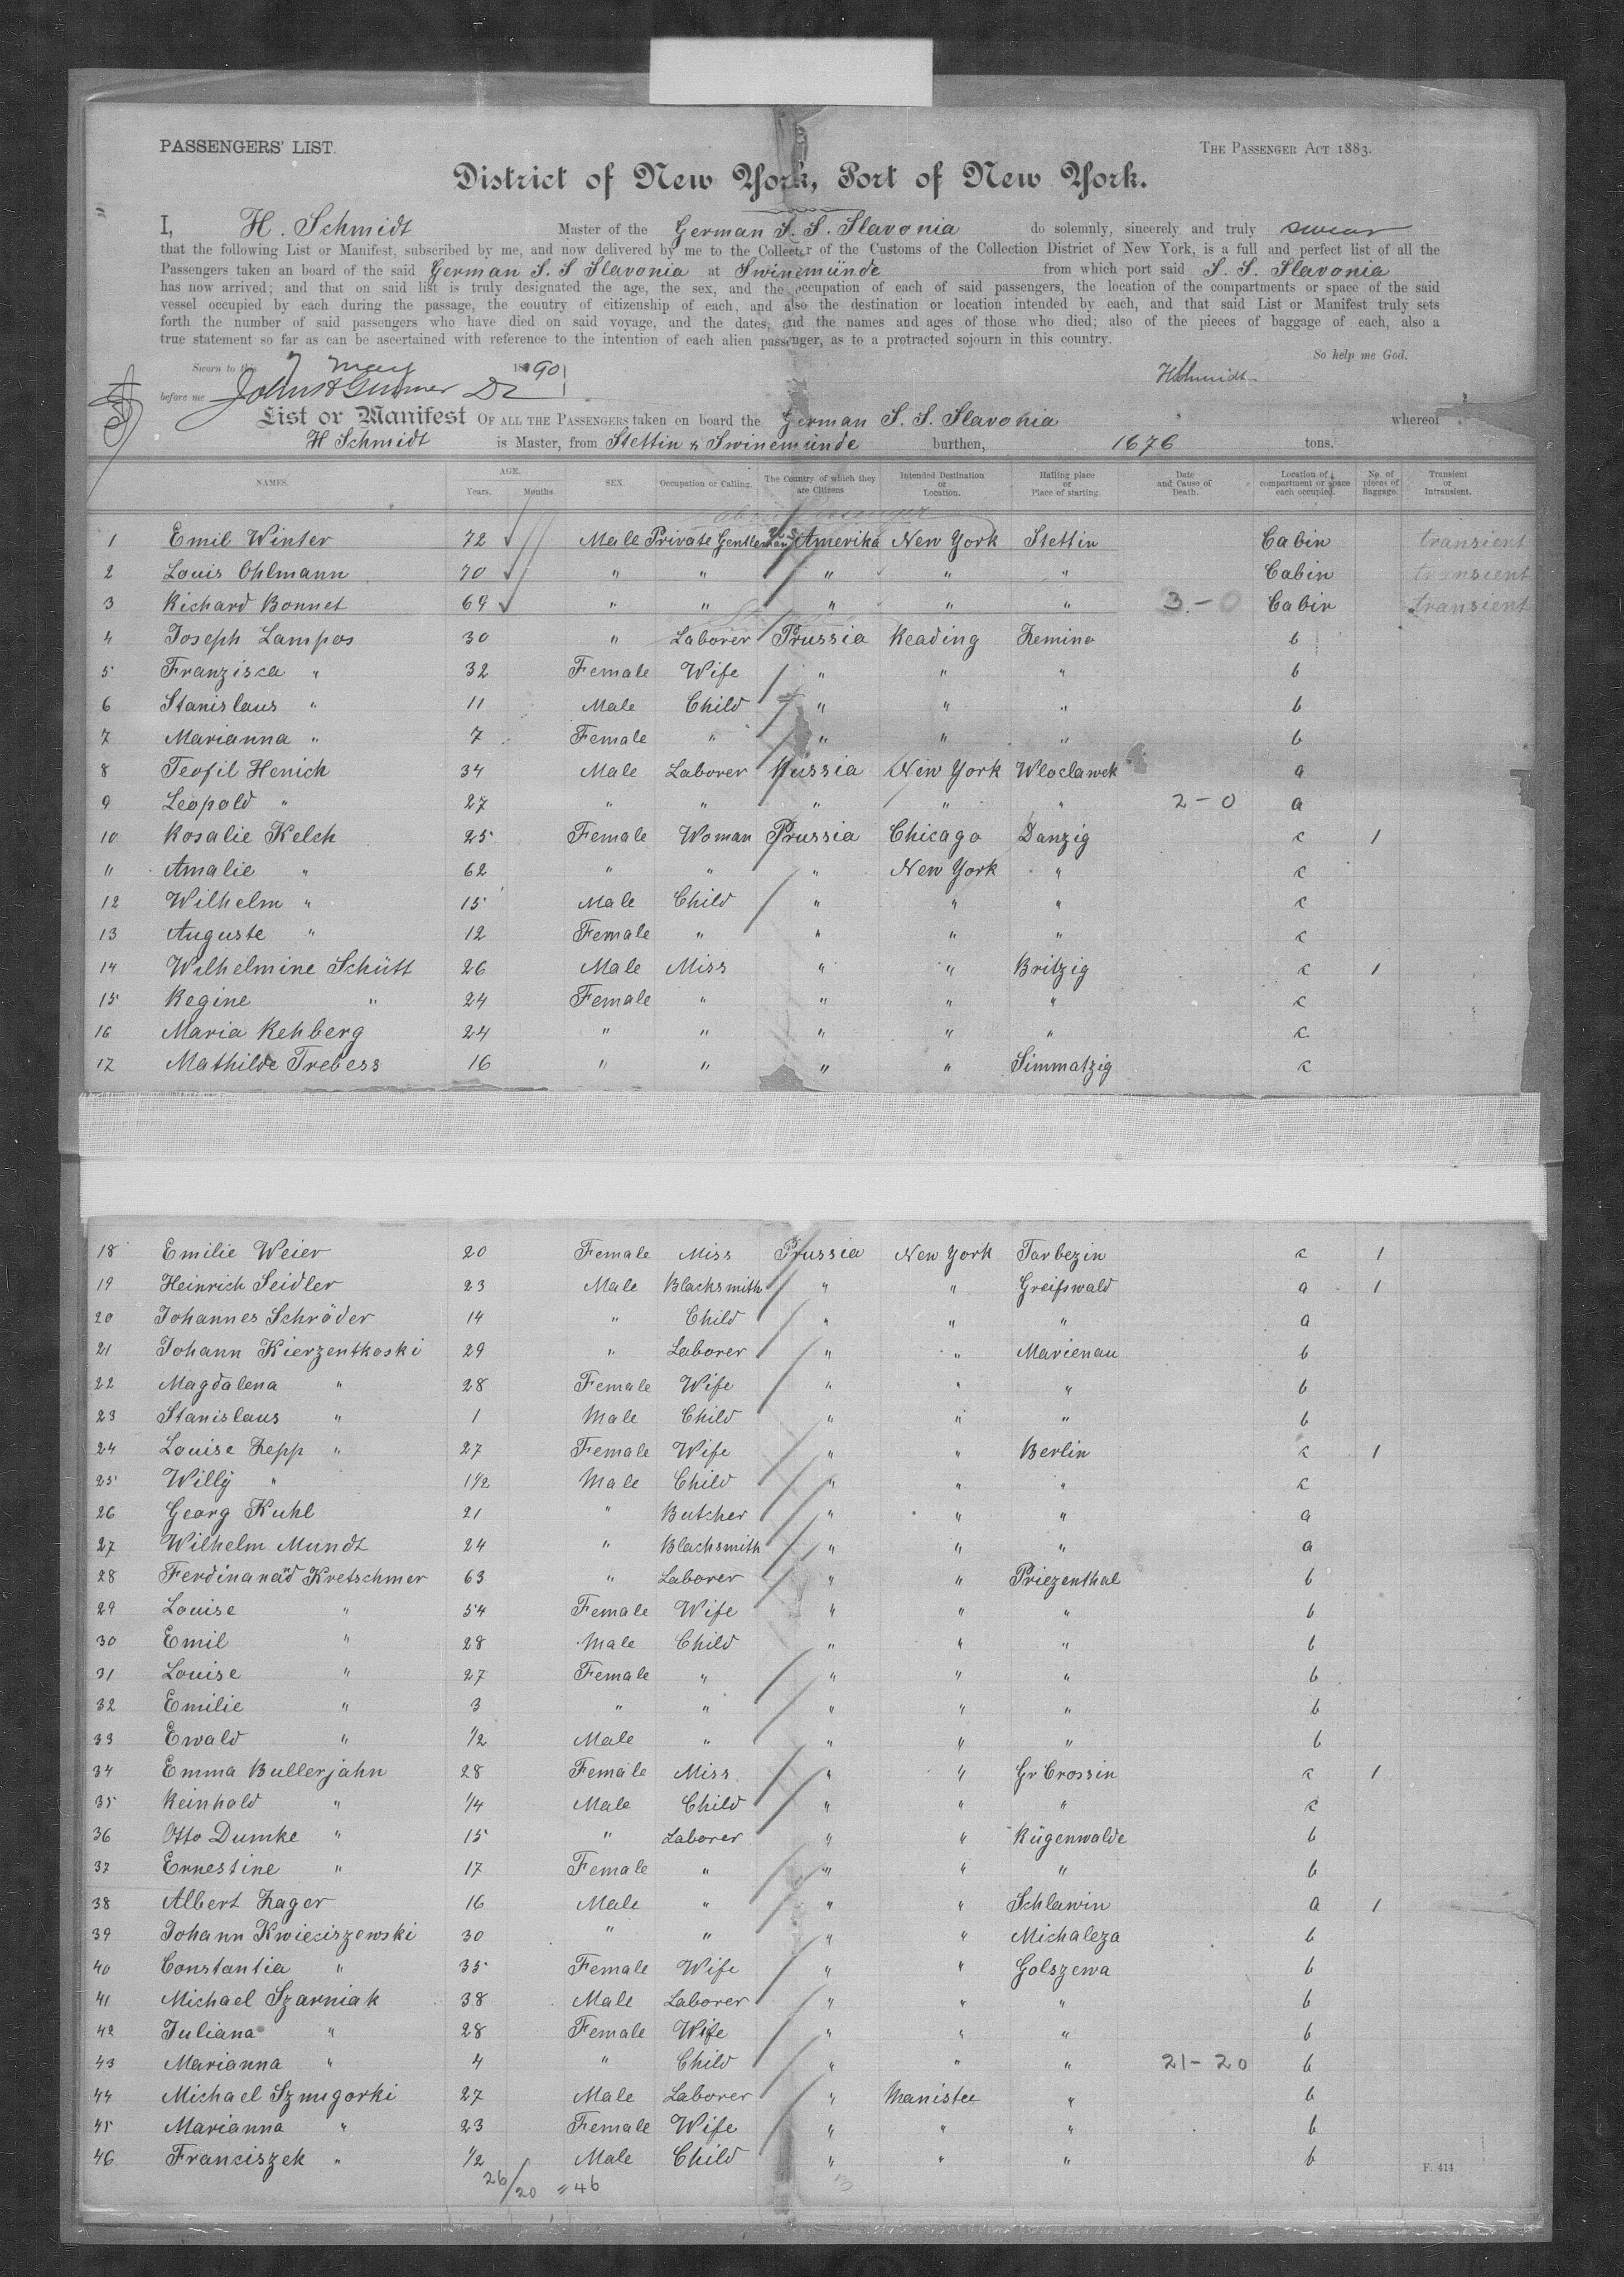 PASSENGERS' LIST.
THE PASSENGER ACT 1883.
District of New York, Port of New York.
I, H. Schmidt Master of the German S. S. Slavonia do solemnly, sincerely and truly swear
that the following List or Manifest, subscribed by me, and now delivered by me to the Collector of the Customs of the Collection District of New York, is a full and perfect list of all the
Passengers taken an board of the said German S. S Slavonia at Swinemünde from which port said S. S. Slavonia
has now arrived; and that on said list is truly designated the age, the sex, and the occupation of each of said passengers, the location of the compartments or space of the said
vessel occupied by each during the passage, the country of citizenship of each, and also the destination or location intended by each, and that said List or Manifest truly sets
forth the number of said passengers who have died on said voyage, and the dates, and the names and ages of those who died; also of the pieces of baggage of each, also a
true statement so far as can be ascertained with reference to the intention of each alien passenger, as to a protracted sojourn in this country.
So help me God.
Sworn to this 7 May 1890
HSchmidt
before me
List or Manifest OF ALL THE PASSENGERS taken on board the German S. S. Slavonia whereof
H Schmidt is Master, from Stettin & Swinemünde burthen, 1676 tons.
NAMES. AGE. Years. Months. SEX. Occupation or Calling. The Country of which they are Citizens Intended Destination or Location. Halling place or Place of starting. Date and Cause of Death. Location of compartment or space each occupied. No. of pieces of Baggage. Transient or Intransient.
1 Emil Winter 72 Male Private Gentleman Amerika New York Stettin Cabin transient
2 Louis Ohlmann 70 " " " " " Cabin transient
3 Richard Bonnet 69 " " " " " 3-0 Cabin transient
4 Joseph Lampos 30 " Laborer Prussia Reading Zemino b
5 Franzisca " 32 Female Wife " " " b
6 Stanislaus " 11 Male Child " " " b
7 Marianna " 7 Female " " " " b
8 Teofil Henich 34 Male Laborer Russia New York Wloclawek a
9 Leopold " 27 " " " " " 2-0 a
10 Rosalie Kelch 25 Female Woman Prussia Chicago Danzig c 1
11 Amalie " 62 " " " New York " c
12 Wilhelm " 15 Male Child " " " c
13 Auguste " 12 Female " " " " c
14 Wilhelmine Schütt 26 Male Miss " " Britzig c 1
15 Regine " 24 Female " " " " c
16 Maria Rehberg 24 " " " " " c
17 Mathilde Trebess 16 " " " " Simmatzig c
18 Emilie Weier 20 Female Miss Prussia New York Tarbezin c 1
19 Heinrich Seidler 23 Male Blacksmith " " Greifswald a 1
20 Johannes Schröder 14 " Child " " " a
21 Johann Kierzentkoski 29 " Laborer " " Marienau b
22 Magdalena " 28 Female Wife " " " b
23 Stanislaus " 1 Male Child " " " b
24 Louise Zepp " 27 Female Wife " " Berlin c 1
25 Willy " 1½ Male Child " " " c
26 Georg Kuhl 21 " Butcher " " " a
27 Wilhelm Mundt 24 " Blacksmith " " " a
28 Ferdinanad Kretschmer 63 " Laborer " " Priezenthal b
29 Louise " 54 Female Wife " " " b
30 Emil " 28 Male Child " " " b
31 Louise " 27 Female " " " " b
32 Emilie " 3 " " " " " b
33 Ewald " ½ Male " " " " b
34 Emma Bullerjahn 28 Female Miss " " Gr Crossin c 1
35 Reinhold " ¼ Male Child " " " c
36 Otto Dumke " 15 " Laborer " " Rügenwalde b
37 Ernestine " 17 Female " " " " b
38 Albert Zager 16 Male " " " Schlawin a 1
39 Johann Kwieciszewski 30 " " " " Michaleza b
40 Constantia " 35 Female Wife " " Golszewa b
41 Michael Szarniak 38 Male Laborer " " " b
42 Juliana " 28 Female Wife " " " b
43 Marianna " 4 " Child " " " 21-20 b
44 Michael Szmugorki 27 Male Laborer " Manistee " b
45 Marianna " 23 Female Wife " " " b
46 Franciszek " ½ Male Child " " " b
26/20 = 46
F. 414